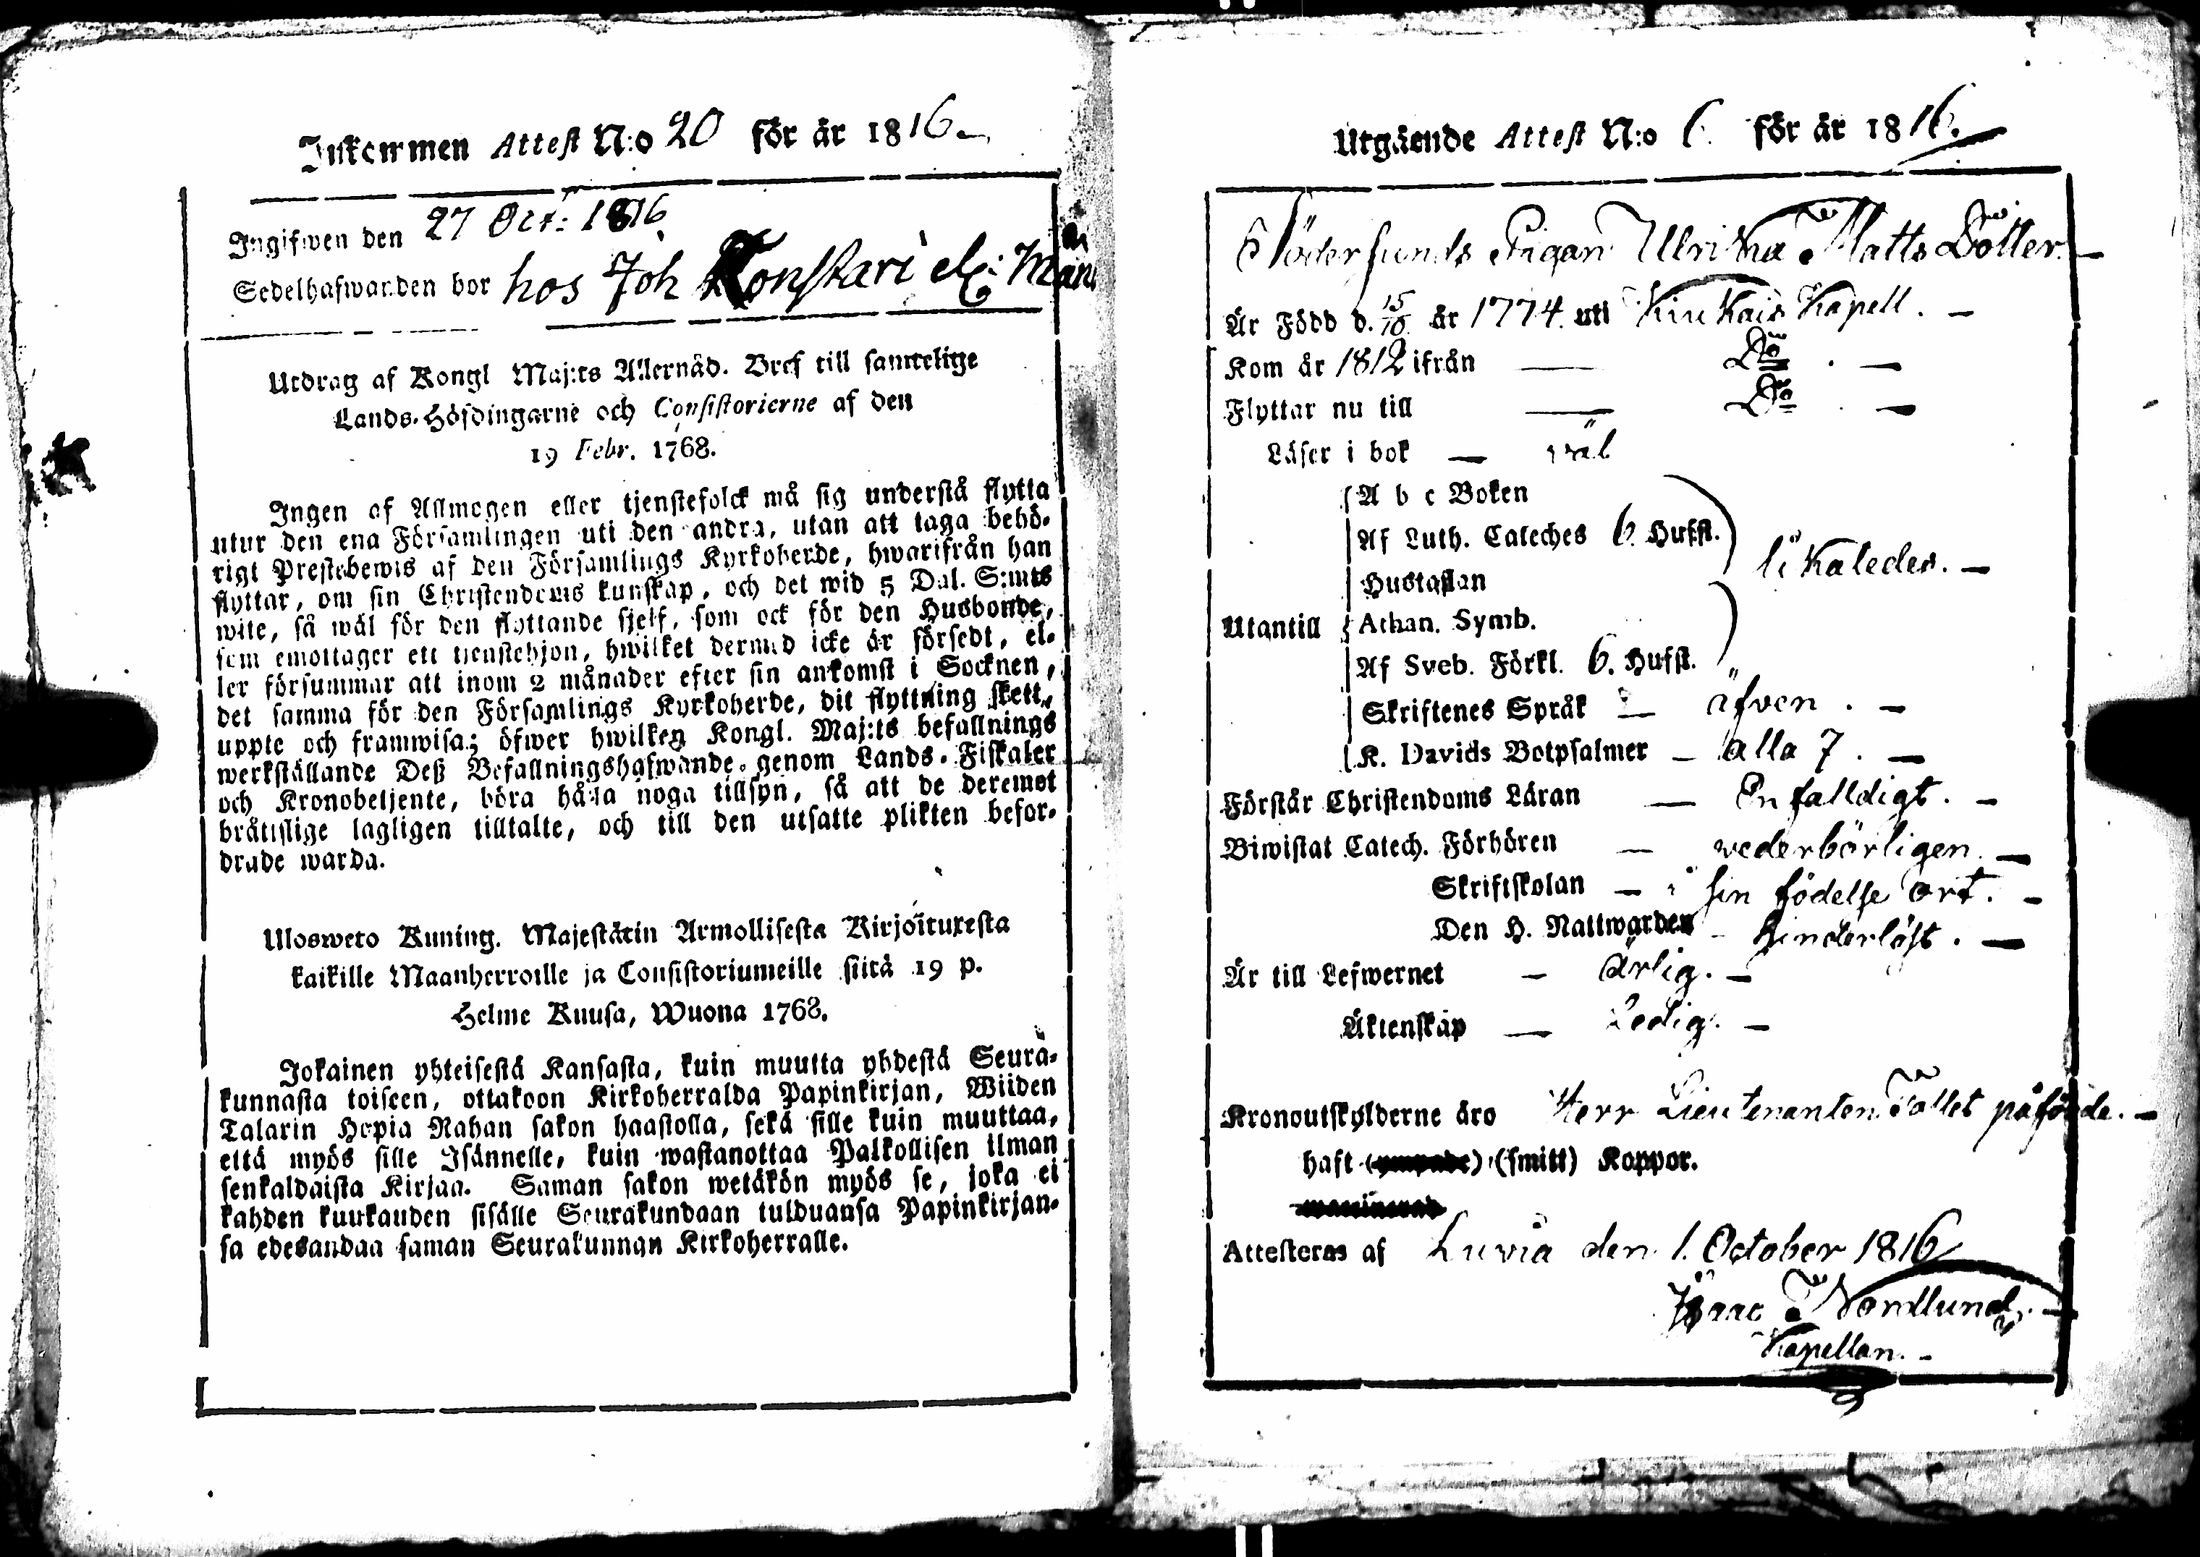 Inkommen Attest N:o 20 för år 1816.
Ingifwen den 27 Oct: 1816
Sedelhafwanden bor hos Joh Konstari el:
Utdrag af Kongl Maj:ts Allernåd. Bref till samtelige
Lands-Höfdingarne och Consistorierne af den
19 Febr. 1768.
Ingen af Allmogen eller tjenstefolck må sig understå flytta
utur den ena Församlingen uti den andra, utan att taga behö-
rigt Prestebewis af den Församlings Kyrkoherde, hwarifrån han
flyttar, om sin Christendoms kunskap, och det wid 5 Dal. S:mts
wite, så wäl för den flyttande sjelf, som ock för den Husbonde,
som emottager ett tjenstehjon, hwilket dermed icke är försedt, el-
ler försummar att inom 2 månader efter sin ankomst i Socknen,
det samma för den Församlings Kyrkoherde, dit flyttning skett,
uppte och framwisa; öfwer hwilken Kongl. Maj:ts befallnings
werkställande Deß Befallningshafwande, genom Lands-Fiskaler
och Kronobetjente, böra hålla noga tillsyn, så att de deremot
bråttslige lagligen tilltalte, och till den utsatte plikten befor-
drade warda.
Ulosweto Kuning. Majestätin Armollisesta Kirjoituxesta
kaikille Maanherroille ja Consistoriumeille siitä 19 p.
Helme Kuusa, Wuona 1768.
Jokainen yhteisestä Kansasta, kuin muutta yhdestä Seura-
kunnasta toiseen, ottakoon Kirkoherralda Papinkirjan, Wiiden
Talarin Hopia Rahan sakon haastolla, sekä sille kuin muuttaa,
että myös sille Isännelle, kuin wastanottaa Palkollisen ilman
senkaldaista Kirjaa. Saman sakon wetäkön myös se, joka ei
kahden kuukauden sisälle Seurakundaan tulduansa Papinkirjan-
sa edesandaa saman Seurakunnan Kirkoherralle.
Utgående Attest N:o 6. för år 1816.
Södersunds Pigan Ulrika Matts Dotter.
Är Född d. 15/10 år 1774. uti Kiukais Kapell.
Kom år 1812 ifrån Do
Flyttar nu till Do
Läser i bok — wäl
Utantill
A b c Boken
Af Luth. Cateches 6. Hufst.
Hustaflan
likaledes.
Athan. Symb.
Af Sveb. Förkl. 6. Hufst.
Skriftenes Språk — äfven.
K. Davids Botpsalmer — alla 7.
Förstår Christendoms Läran — Enfalldigt.
Biwistat Catech. Förhören — wederbörligen.
Skriftskolan — i sin födelse ort.
Den H. Nattwarden — hinderlöst.
Är till Lefwernet — ärlig.
Äktenskap — Ledig.
Kronoutskylderne äro Herr Lieutenanten Tollet påförde.
haft (ympade) (smitt) Koppor.
Attesteras af Luvia den 1. October 1816
Isaac Nordlund,
Kapellan.